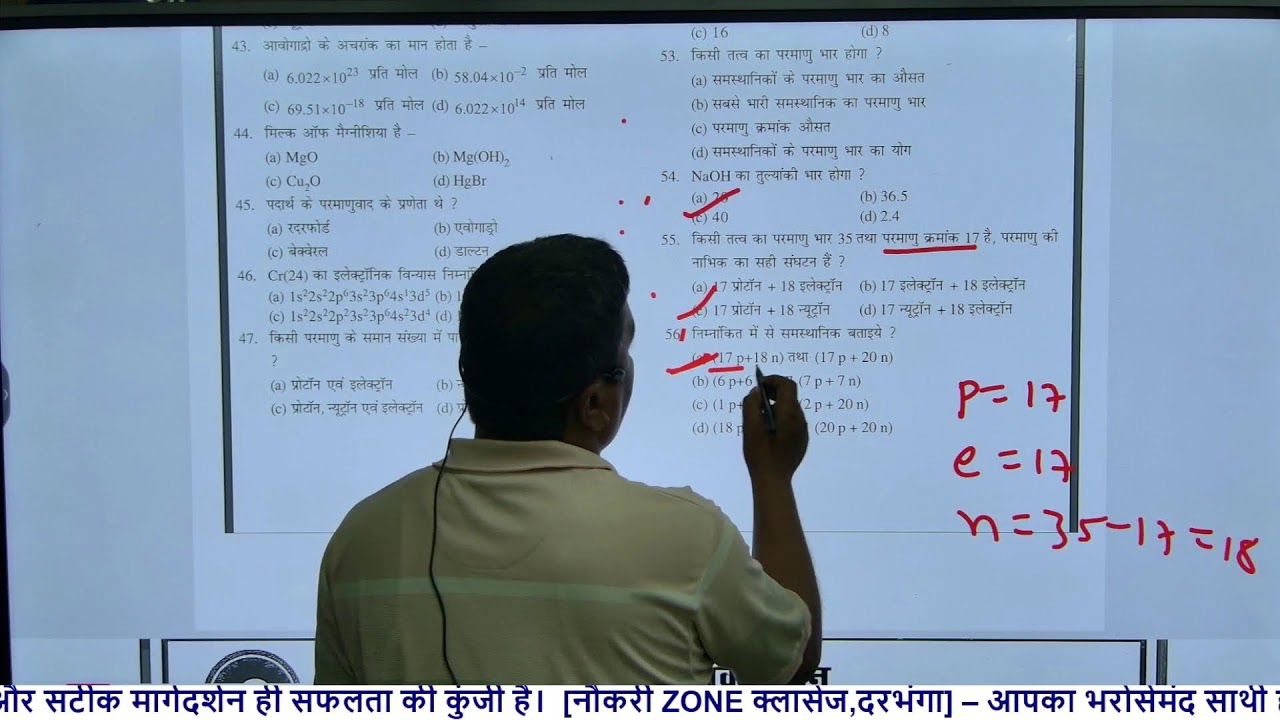 43. आवोगाद्रो के अचरांक का मान होता है –
(a) 6.022×10²³ प्रति मोल (b) 58.04×10⁻² प्रति मोल
(c) 69.51×10⁻¹⁸ प्रति मोल (d) 6.022×10¹⁴ प्रति मोल
44. मिल्क ऑफ मैग्नीशिया है –
(a) MgO (b) Mg(OH)₂
(c) Cu₂O (d) HgBr
45. पदार्थ के परमाणुवाद के प्रणेता थे ?
(a) रदरफोर्ड (b) एवोगाद्रो
(c) बेक्वेरल (d) डाल्टन
46. Cr(24) का इलेक्ट्रॉनिक विन्यास
(a) 1s²2s²2p⁶3s²3p⁶4s¹3d⁵ (b)
(c) 1s²2s²2p²3s²3p⁶4s²3d⁴ (d)
47. किसी परमाणु के समान संख्या में
?
(a) प्रोटॉन एवं इलेक्ट्रॉन (b)
(c) प्रोटॉन, न्यूट्रॉन एवं इलेक्ट्रॉन (d)
(c) 16 (d) 8
53. किसी तत्व का परमाणु भार होगा ?
(a) समस्थानिकों के परमाणु भार का औसत
(b) सबसे भारी समस्थानिक का परमाणु भार
(c) परमाणु क्रमांक औसत
(d) समस्थानिकों के परमाणु भार का योग
54. NaOH का तुल्यांकी भार होगा ?
(a) (b) 36.5
(c) 40 (d) 2.4
55. किसी तत्व का परमाणु भार 35 तथा परमाणु क्रमांक 17 है, परमाणु की
नाभिक का सही संघटन हैं ?
(a) 17 प्रोटॉन + 18 इलेक्ट्रॉन (b) 17 इलेक्ट्रॉन + 18 इलेक्ट्रॉन
(c) 17 प्रोटॉन + 18 न्यूट्रॉन (d) 17 न्यूट्रॉन + 18 इलेक्ट्रॉन
56. निम्नांकित में से समस्थानिक बताइये ?
(17 p+18 n) तथा (17 p + 20 n)
(b) (6 p+6 (7 p + 7 n)
(c) (1 p+ (2 p + 20 n)
(d) (18 p (20 p + 20 n)
p = 17
e = 17
n = 35 - 17 = 18
और सटीक मार्गदर्शन ही सफलता की कुंजी है। [नौकरी ZONE क्लासेज,दरभंगा] – आपका भरोसेमंद साथी